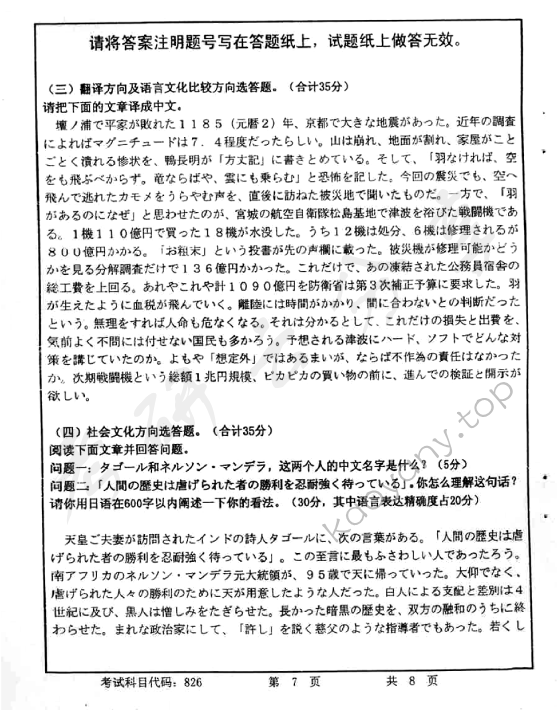 请将答案注明题号写在答题纸上，试题纸上做答无效。
（三）翻译方向及语言文化比较方向选答题。（合计35分）
请把下面的文章译成中文。
壇ノ浦で平家が敗れた１１８５（元暦２）年、京都で大きな地震があった。近年の調査
によればマグニチュードは７．４程度だったらしい。山は崩れ、地面が割れ、家屋がこと
ごとく潰れる惨状を、鴨長明が「方丈記」に書きとめている。そして、「羽なければ、空
をも飛ぶべからず。竜ならばや、雲にも乗らむ」と恐怖を記した。今回の震災でも、空へ
飛んで逃れたカモメをうらやむ声を、直後に訪ねた被災地で聞いたものだ。一方で、「羽
があるのになぜ」と思わせたのが、宮城の航空自衛隊松島基地で津波を浴びた戦闘機であ
る。１機１１０億円で買った１８機が水没した。うち１２機は処分、６機は修理されるが
８００億円かかる。「お粗末」という投書が先の声欄に載った。被災機が修理可能かどう
かを見る分解調査だけで１３６億円かかった。これだけで、あの凍結された公務員宿舎の
総工費を上回る。あれやこれや計１０９０億円を防衛省は第３次補正予算に要求した。羽
が生えたように血税が飛んでいく。離陸には時間がかかり、間に合わないとの判断だった
という。無理をすれば人命も危なくなる。それは分かるとして、これだけの損失と出費を、
気前よく不問には付せない国民も多かろう。予想される津波にハード、ソフトでどんな対
策を講じていたのか。よもや「想定外」ではあるまいが、ならば不作為の責任はなかった
か。次期戦闘機という総額１兆円規模、ピカピカの買い物の前に、進んでの検証と開示が
欲しい。
（四）社会文化方向选答题。（合计35分）
阅读下面文章并回答问题。
问题一：タゴール和ネルソン・マンデラ，这两个人的中文名字是什么？（5分）
问题二：「人間の歴史は虐げられた者の勝利を忍耐強く待っている」。你怎么理解这句话？
请你用日语在600字以内阐述一下你的看法。（30分，其中语言表达精确度占20分）
天皇ご夫妻が訪問されたインドの詩人タゴールに、次の言葉がある。「人間の歴史は虐
げられた者の勝利を忍耐強く待っている」。この至言に最もふさわしい人であったろう。
南アフリカのネルソン・マンデラ元大統領が、９５歳で天に帰っていった。大仰でなく、
虐げられた人々の勝利のために天が用意したような人だった。白人による支配と差別は４
世紀に及び、黒人は憎しみをたぎらせた。長かった暗黒の歴史を、双方の融和のうちに終
わらせた。まれな政治家にして、「許し」を説く慈父のような指導者でもあった。若くし
考试科目代码：826 第 7 页 共 8 页
kaoyany.top